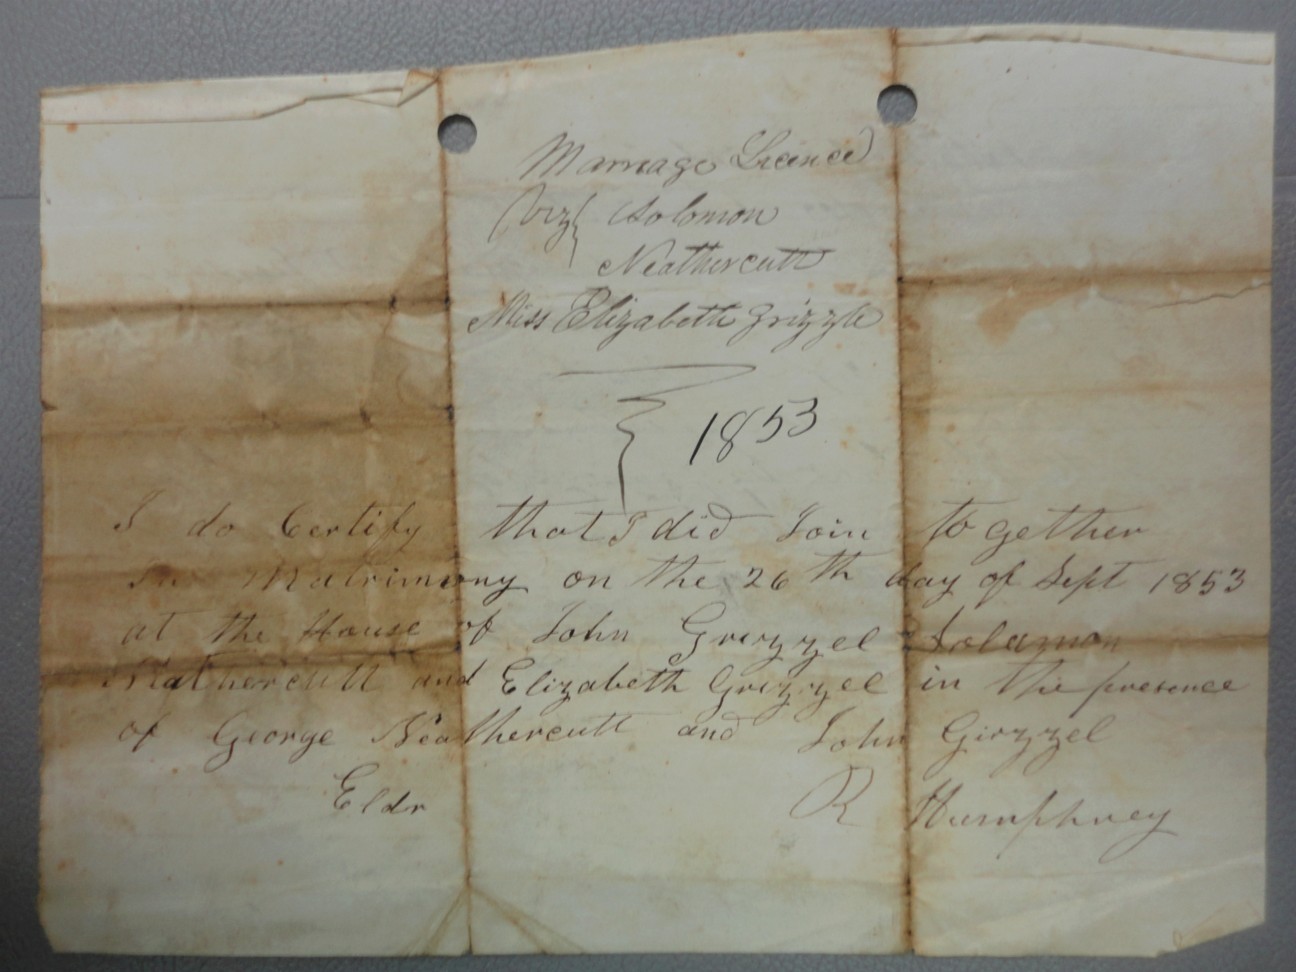 Marriage Licence
(viz{ Solomon
Neathercutt
Miss Elizabeth Grizzle
1853
I do Certify that I did Join to gether
In Matrimony on the 26th day of Sept 1853
at the House of John Grizzel Solamon
Nathercutt and Elizabeth Grizzel in the presence
of George Neathercutt and John Girzzel
Eldr R Humphrey